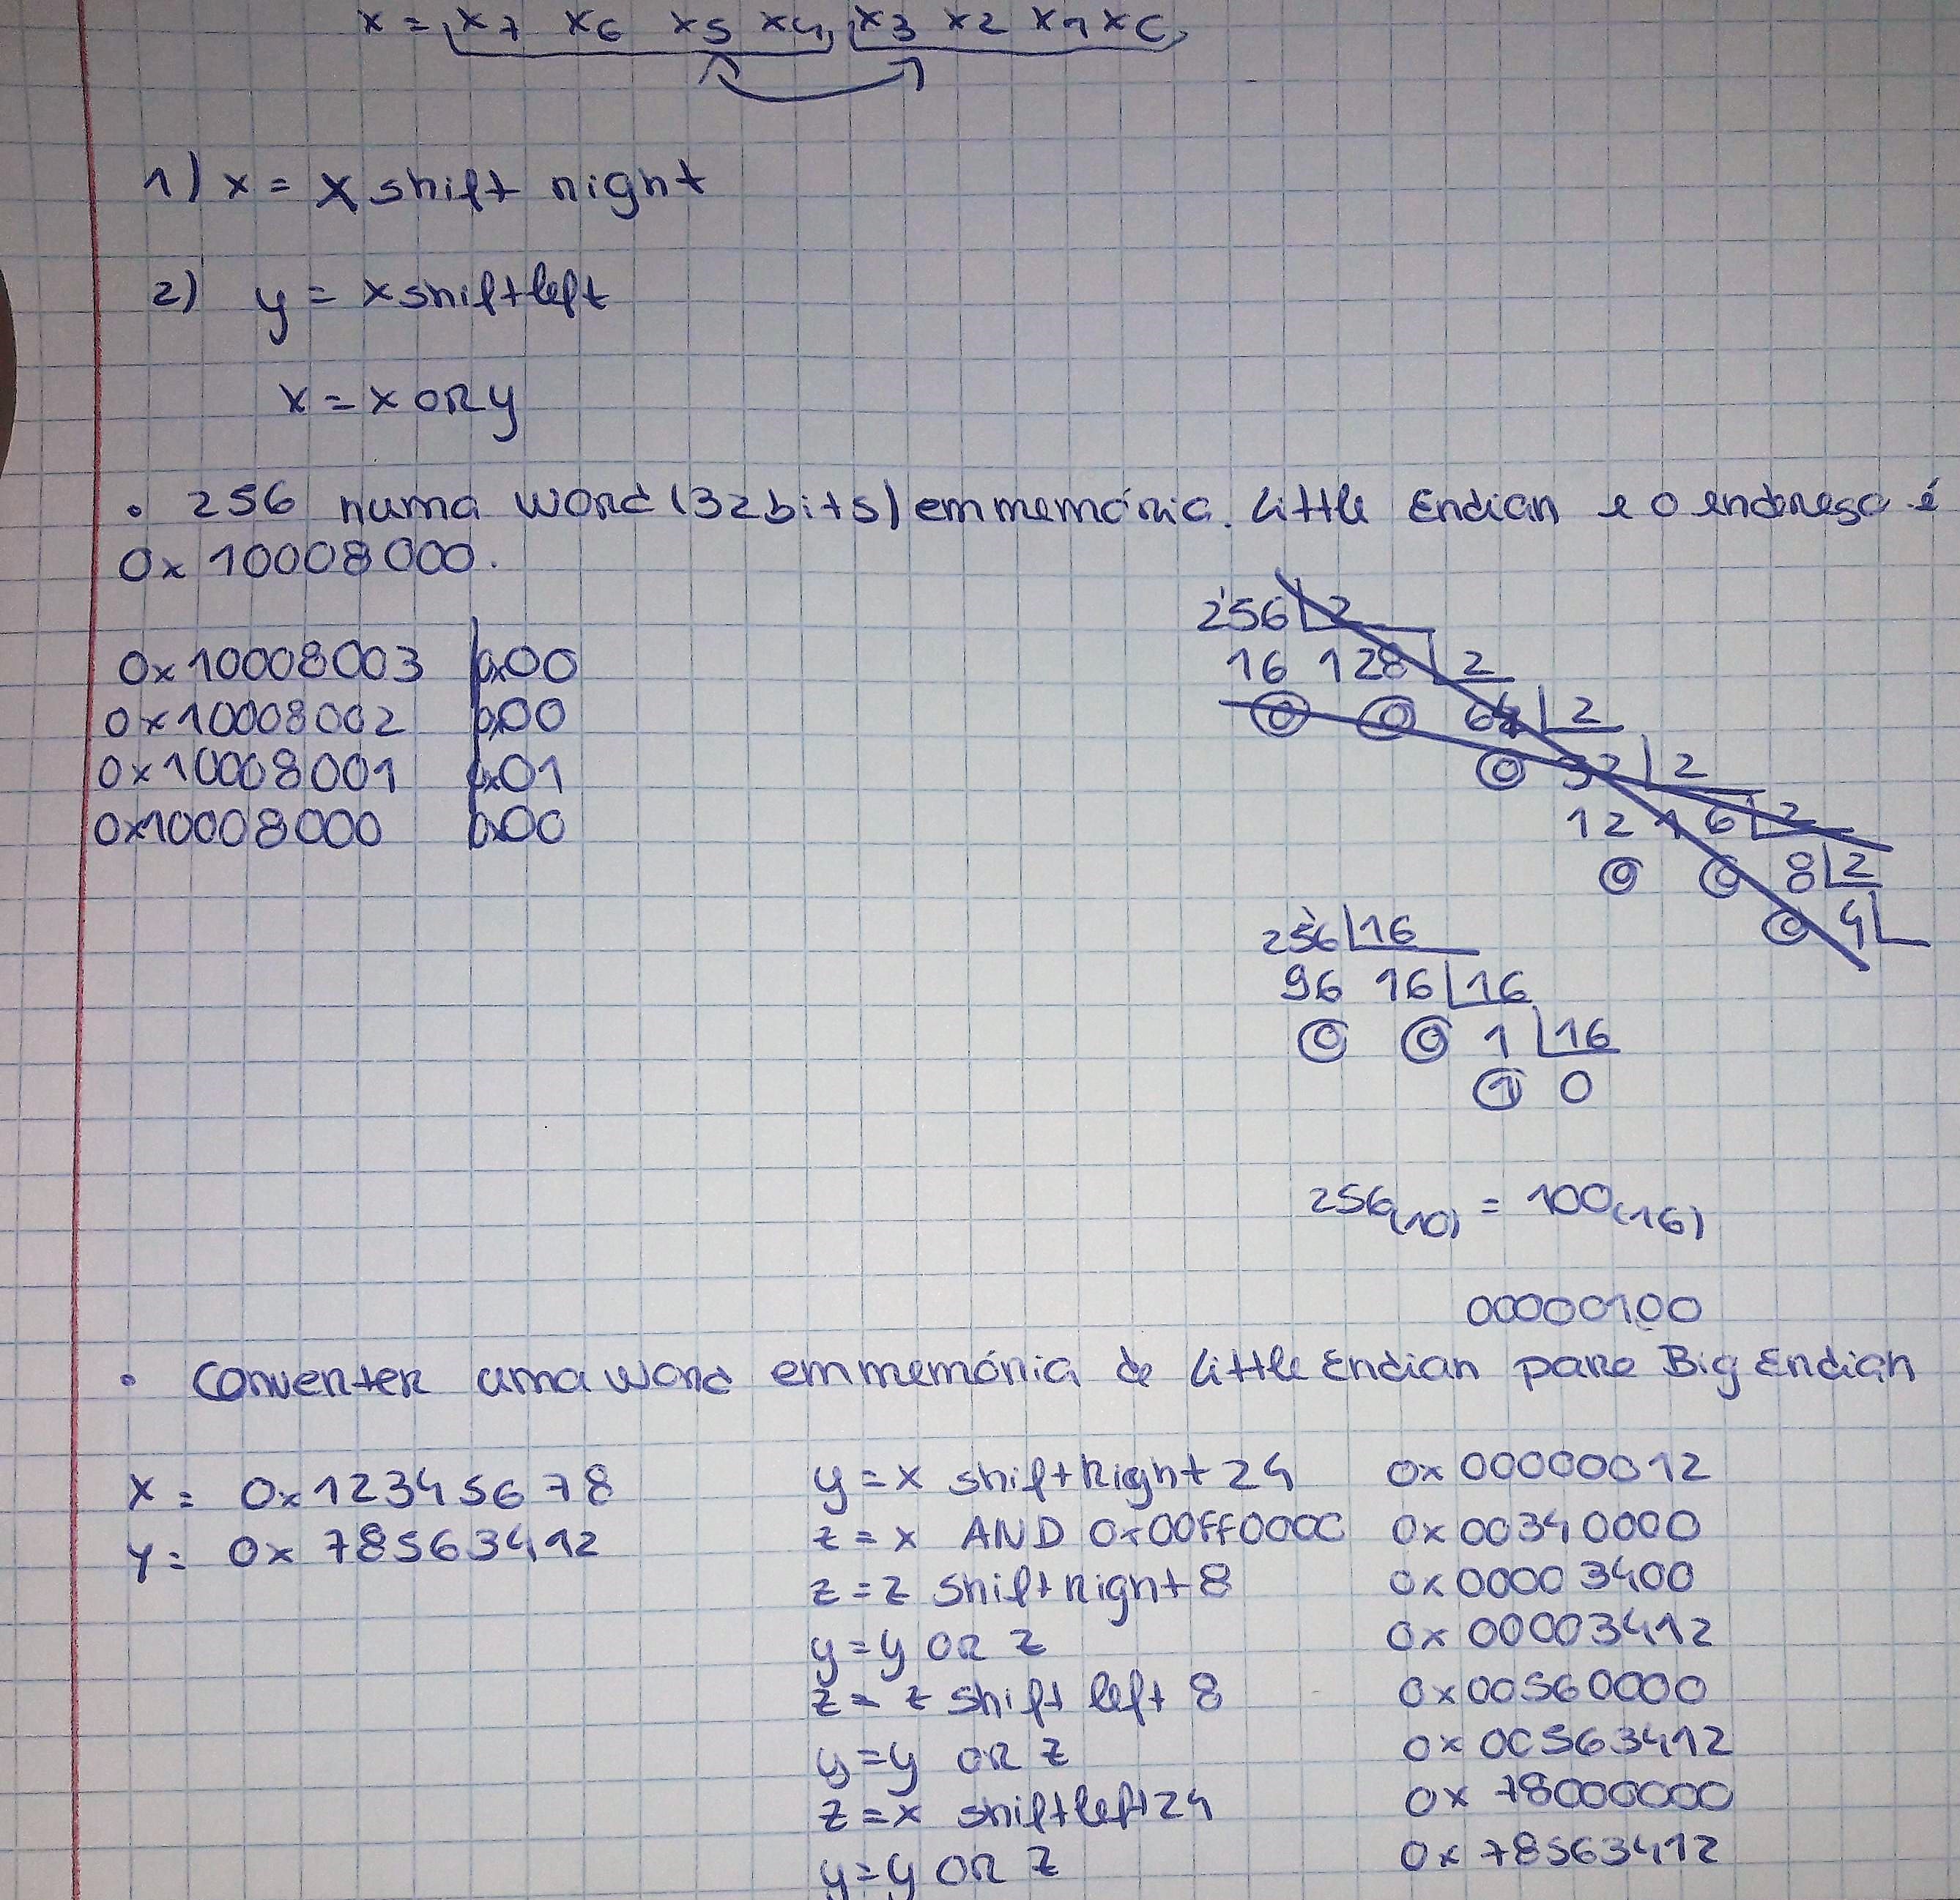 x = x7 x6 x5 x4, x3 x2 x1 x0
1) x = x shift right
2) y = x shift left
x = x OR y
• 256 numa word (32 bits) em memória. Little Endian e o endereço é
0x 10008000.
0x10008003 0x00
0x10008002 0x00
0x10008001 0x01
0x10008000 0x00
256 2
16 128 2
0 0 64 2
0 32 2
12 16 2
0 0 8 2
0 4
256 16
96 16 16
0 0 1 16
1 0
256(10) = 100(16)
00000100
• Converter uma word em memória de Little Endian para Big Endian
X = 0x12345678
Y = 0x 78563412
y = x shift Right 24 0x 00000012
z = x AND 0x00FF0000 0x 00340000
z = z shift right 8 0x 00003400
y = y OR z 0x 00003412
z = z shift left 8 0x 00560000
y = y OR z 0x 00563412
z = x shift left 24 0x 78000000
y = y OR z 0x 78563412